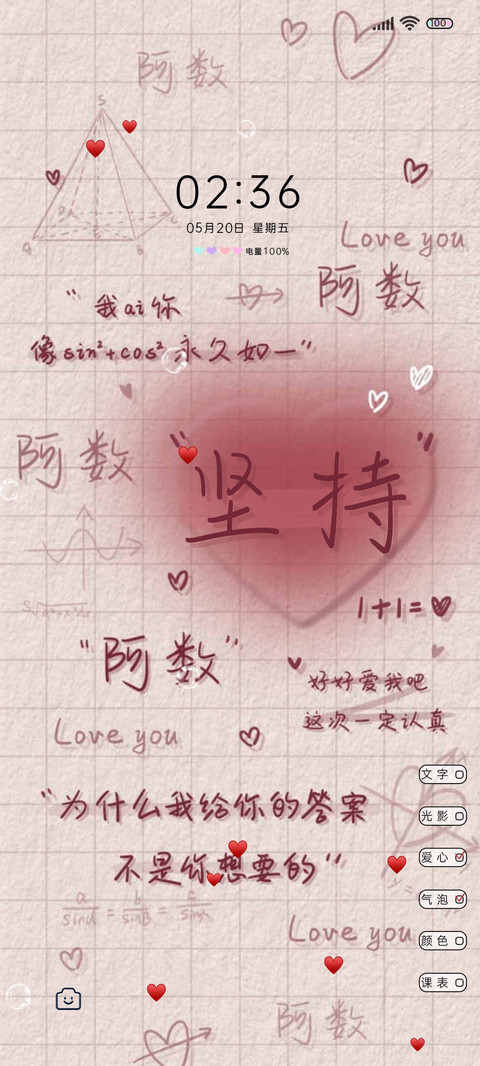 100
阿数
S
02:36
05月20日 星期五
电量100%
Love you
阿数
"我ai你
像sin²+cos²永久如一"
阿数
"坚持"
1+1=
"阿数"
好好爱我吧
这次一定认真
Love you
文字
"为什么我给你的答案
光影
不是你想要的"
爱心
气泡
a/sinA = b/sinB = c/sin
Love you
颜色
课表
阿数